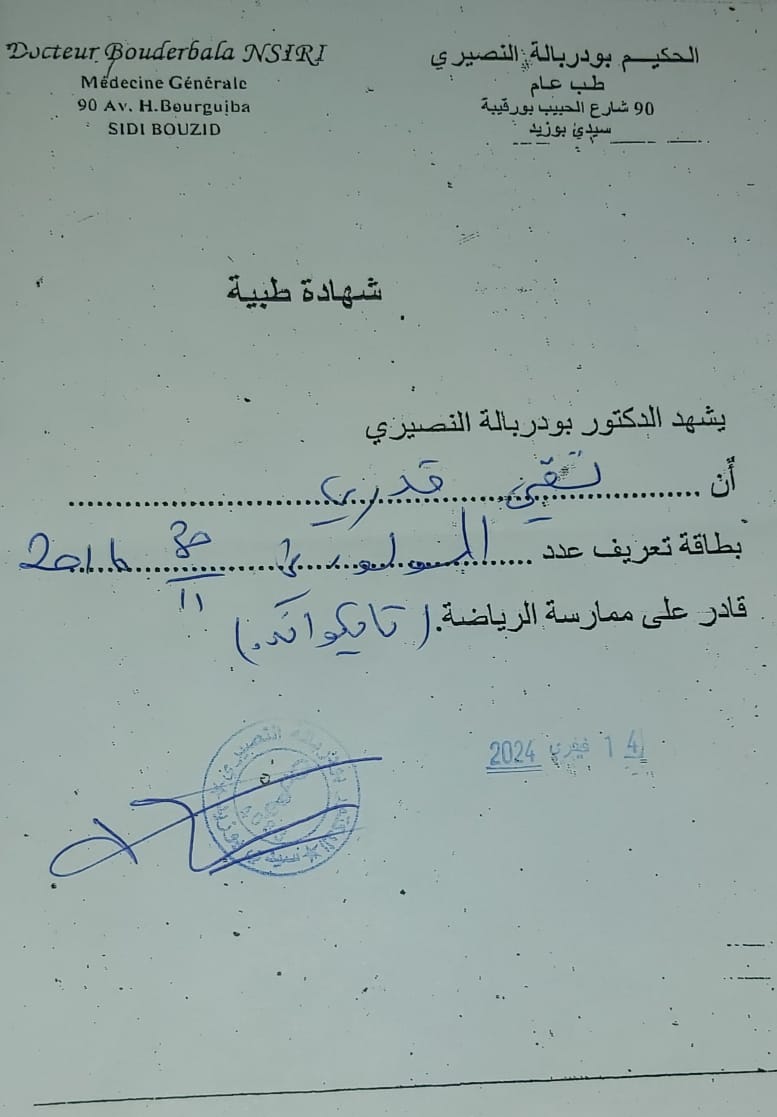 Docteur Bouderbala NSIRI
Médecine Générale
90 Av. H.Bourguiba
SIDI BOUZID
الحكيم بودربالة النصيري
طب عام
90 شارع الحبيب بورقيبة
سيدي بوزيد
شهادة طبية
يشهد الدكتور بودربالة النصيري
أن تقي قدري
بطاقة تعريف عدد المولود في 2016
قادر على ممارسة الرياضة. (تايكواندو)
14 فيفري 2024